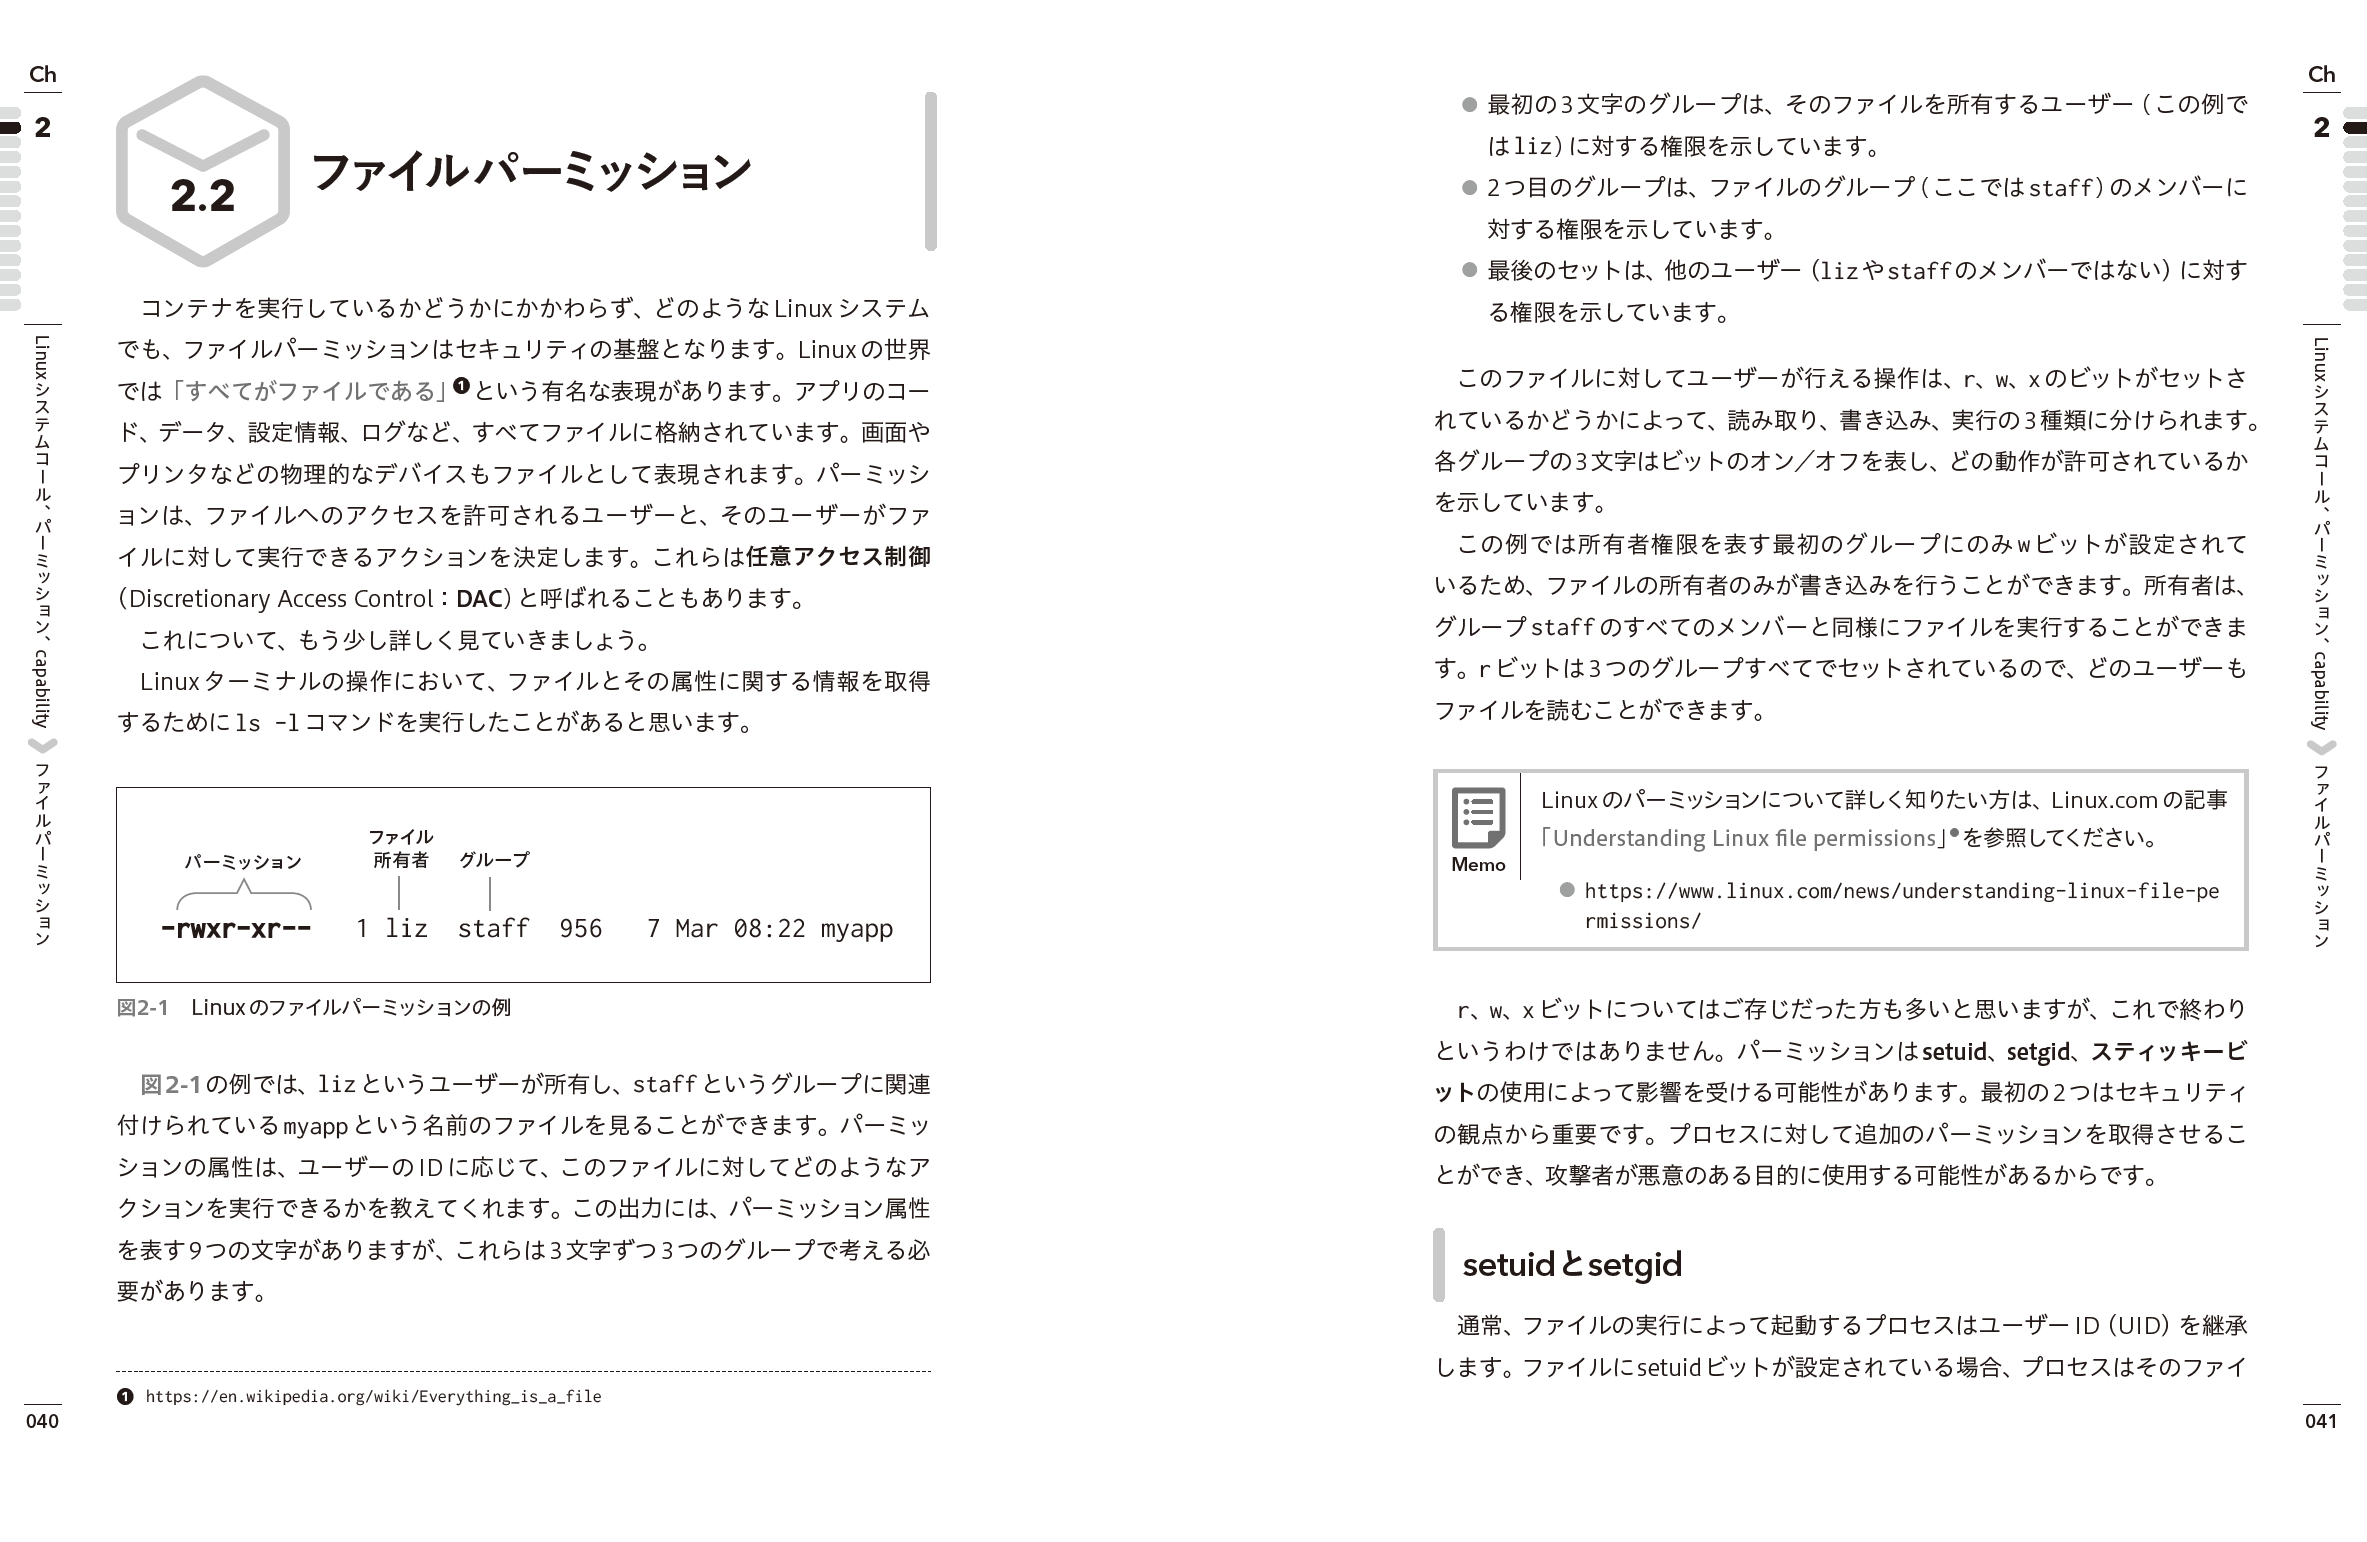 Ch
2
Linuxシステムコール、パーミッション、capability
ファイルパーミッション
2.2
ファイルパーミッション
コンテナを実行しているかどうかにかかわらず、どのようなLinuxシステム
でも、ファイルパーミッションはセキュリティの基盤となります。Linuxの世界
では「すべてがファイルである」❶という有名な表現があります。アプリのコー
ド、データ、設定情報、ログなど、すべてファイルに格納されています。画面や
プリンタなどの物理的なデバイスもファイルとして表現されます。パーミッシ
ョンは、ファイルへのアクセスを許可されるユーザーと、そのユーザーがファ
イルに対して実行できるアクションを決定します。これらは任意アクセス制御
（Discretionary Access Control：DAC）と呼ばれることもあります。
これについて、もう少し詳しく見ていきましょう。
Linuxターミナルの操作において、ファイルとその属性に関する情報を取得
するためにls -lコマンドを実行したことがあると思います。
パーミッション
ファイル
所有者
グループ
-rwxr-xr-- 1 liz staff 956 7 Mar 08:22 myapp
図2-1 Linuxのファイルパーミッションの例
図2-1の例では、lizというユーザーが所有し、staffというグループに関連
付けられているmyappという名前のファイルを見ることができます。パーミッ
ションの属性は、ユーザーのIDに応じて、このファイルに対してどのようなア
クションを実行できるかを教えてくれます。この出力には、パーミッション属性
を表す9つの文字がありますが、これらは3文字ずつ3つのグループで考える必
要があります。
❶ https://en.wikipedia.org/wiki/Everything_is_a_file
040
● 最初の3文字のグループは、そのファイルを所有するユーザー（この例で
はliz）に対する権限を示しています。
● 2つ目のグループは、ファイルのグループ（ここではstaff）のメンバーに
対する権限を示しています。
● 最後のセットは、他のユーザー（lizやstaffのメンバーではない）に対す
る権限を示しています。
このファイルに対してユーザーが行える操作は、r、w、xのビットがセットさ
れているかどうかによって、読み取り、書き込み、実行の3種類に分けられます。
各グループの3文字はビットのオン／オフを表し、どの動作が許可されているか
を示しています。
この例では所有者権限を表す最初のグループにのみwビットが設定されて
いるため、ファイルの所有者のみが書き込みを行うことができます。所有者は、
グループstaffのすべてのメンバーと同様にファイルを実行することができま
す。rビットは3つのグループすべてでセットされているので、どのユーザーも
ファイルを読むことができます。
Memo
Linuxのパーミッションについて詳しく知りたい方は、Linux.comの記事
「Understanding Linux file permissions」●を参照してください。
● https://www.linux.com/news/understanding-linux-file-pe
rmissions/
r、w、xビットについてはご存じだった方も多いと思いますが、これで終わり
というわけではありません。パーミッションはsetuid、setgid、スティッキービ
ットの使用によって影響を受ける可能性があります。最初の2つはセキュリティ
の観点から重要です。プロセスに対して追加のパーミッションを取得させるこ
とができ、攻撃者が悪意のある目的に使用する可能性があるからです。
setuidとsetgid
通常、ファイルの実行によって起動するプロセスはユーザーID（UID）を継承
します。ファイルにsetuidビットが設定されている場合、プロセスはそのファイ
Ch
2
Linuxシステムコール、パーミッション、capability
ファイルパーミッション
041